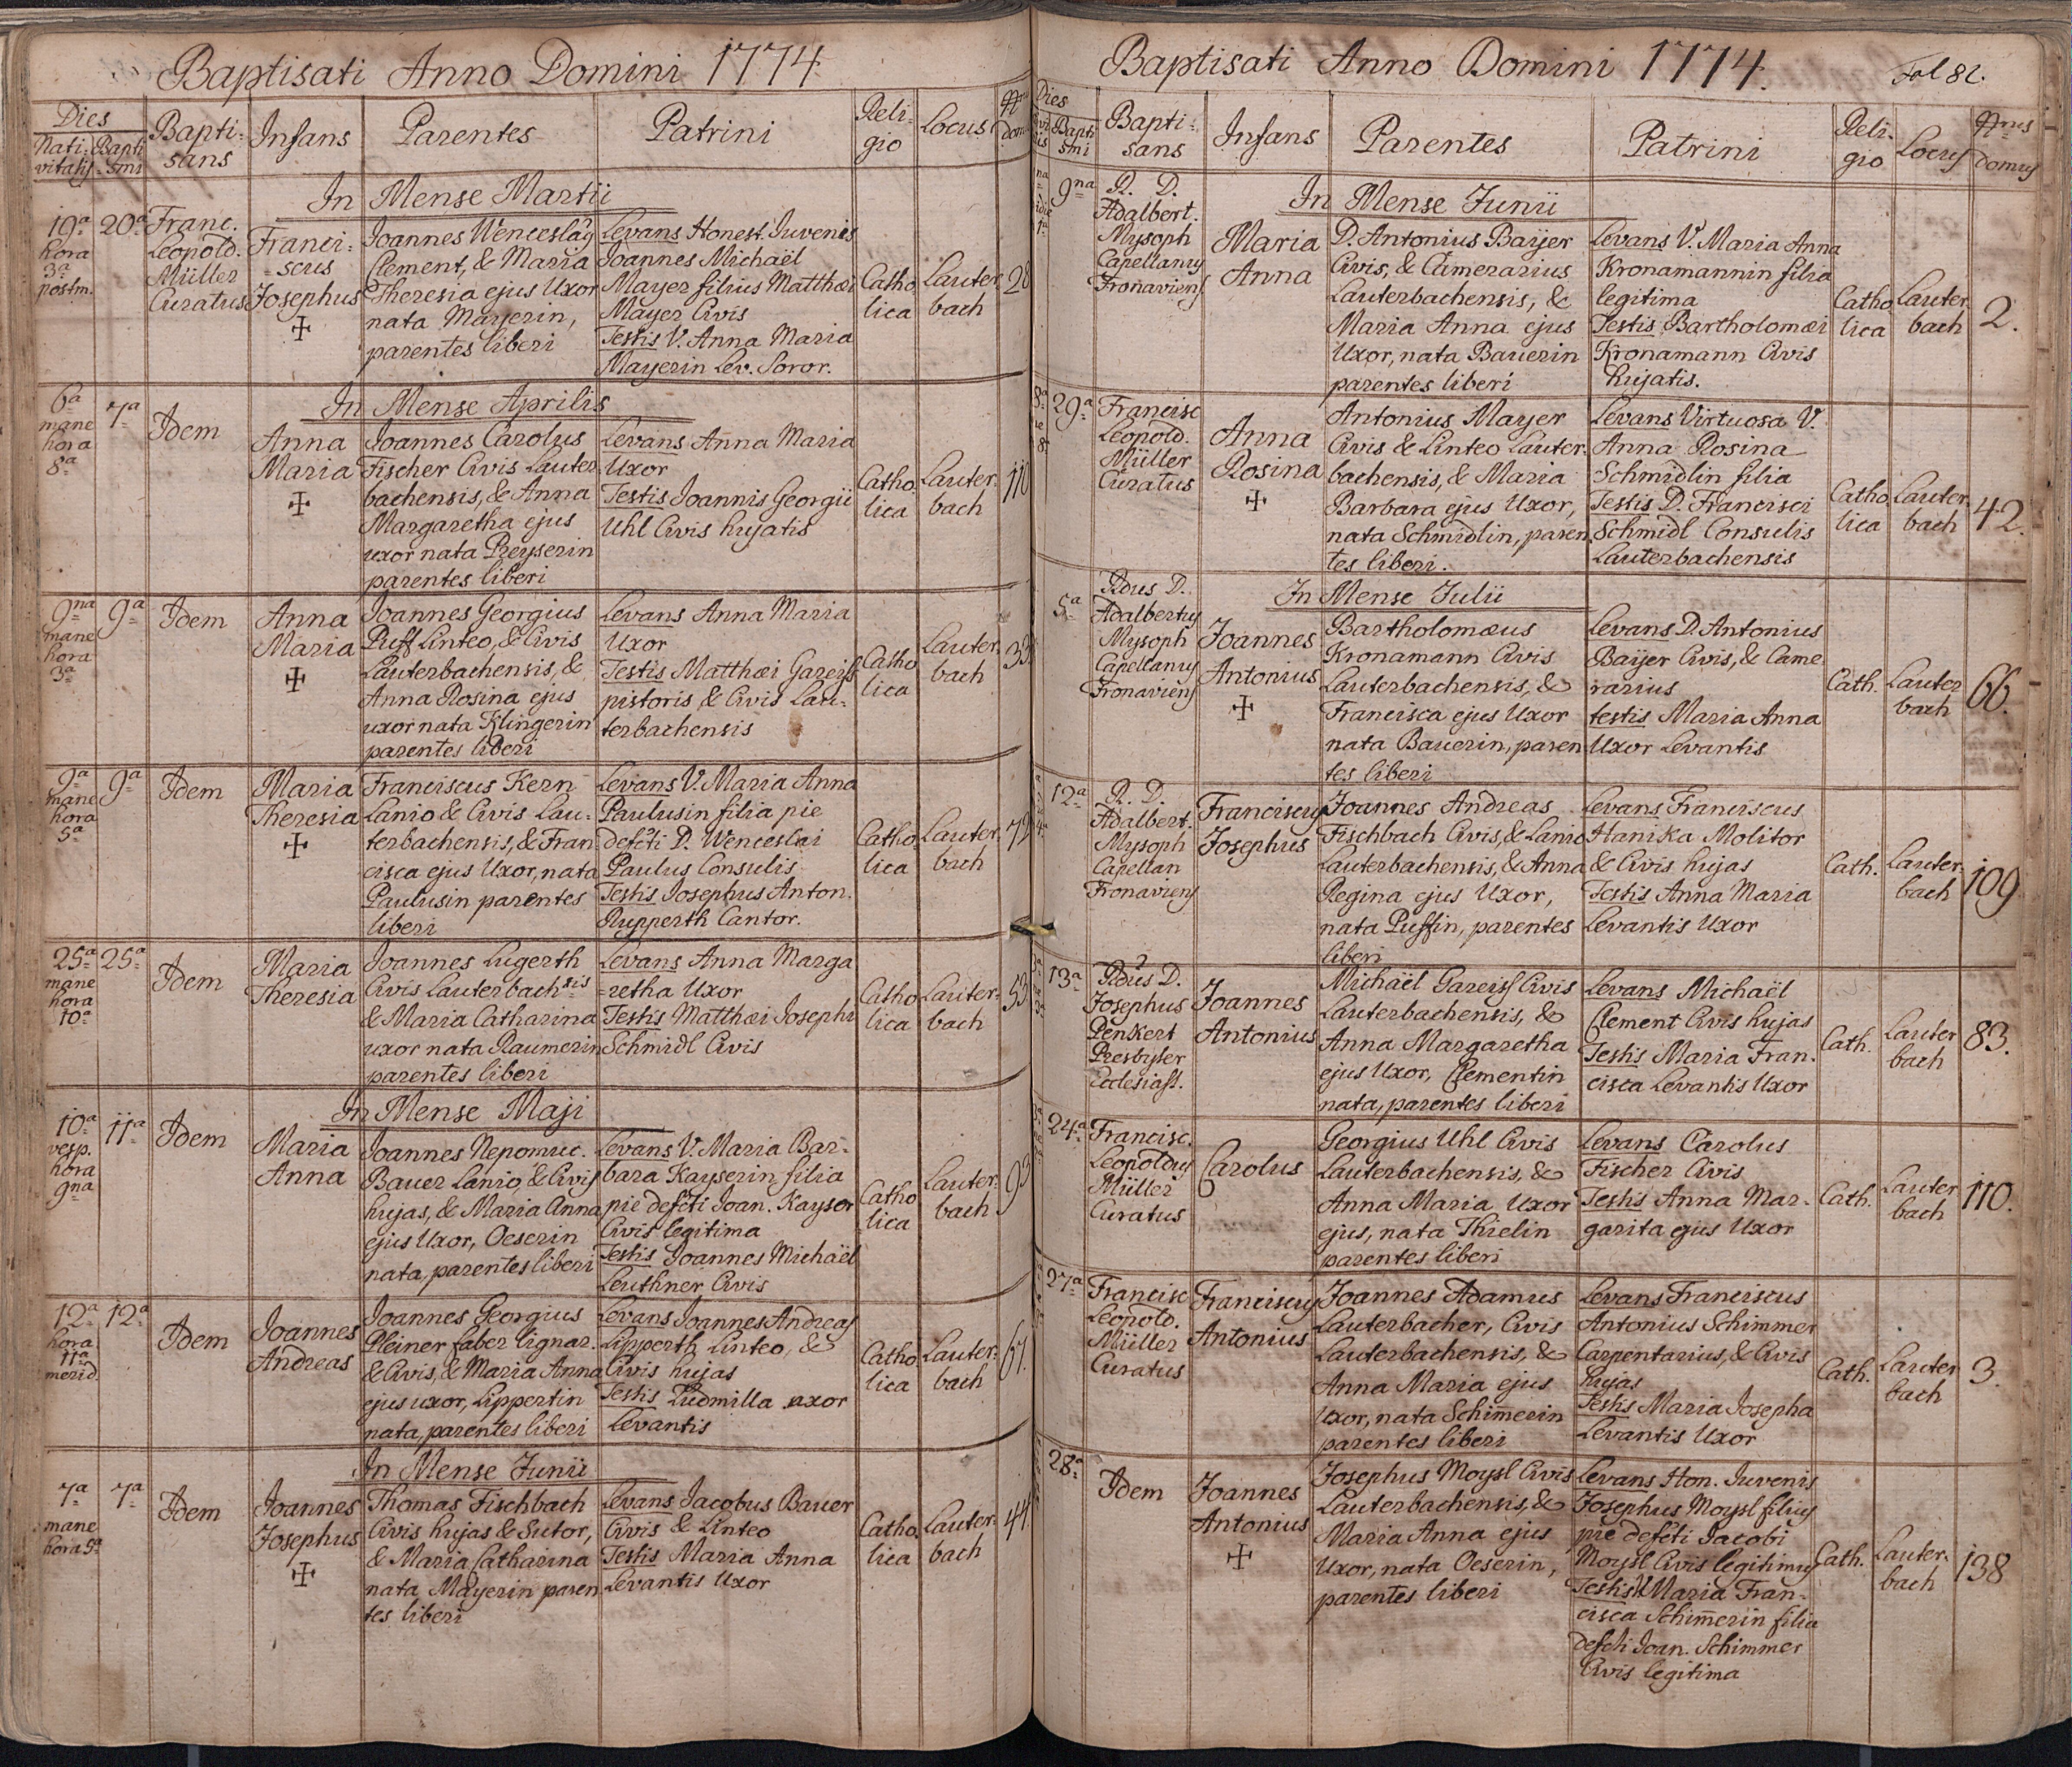 Baptisati Anno Domini 1774.
Dies
Nati-
vitatis
Bapti
smi
Bapti-
sans
Infans
Parentes
Patrini
Reli-
gio
Locus
Nrus
dom
In Mense Martii
19a
hora
3a
postm.
20a
Franc.
Leopold.
Müller
Curatus
Franci-
scus
Josephus
Joannes Wenceslaus
Clement, & Maria
Theresia ejus Uxor
nata Mayerin,
parentes liberi
Levans Honest. Juvenis
Joannes Michaël
Mayer filius Matthaei
Mayer Civis
Testis V. Anna Maria
Mayerin Lev. Soror.
Catho
lica
Lauter
bach
28
In Mense Aprilis
6a
mane
hora
8a
7a
Idem
Anna
Maria
Joannes Carolus
Fischer Civis Lauter
bachensis, & Anna
Margaretha ejus
uxor nata Preyserin
parentes liberi
Levans Anna Maria
Uxor
Testis Joannis Georgii
Uhl Civis hujatis
Catho
lica
Lauter-
bach
110
9na
mane
hora
3a
9a
Idem
Anna
Maria
Joannes Georgius
Puff Linteo, & Civis
Lauterbachensis, &
Anna Rosina ejus
uxor nata Klingerin
parentes liberi
Levans Anna Maria
Uxor
Testis Matthaei Gareiss
pistoris & Civis Lau-
terbachensis
Catho
lica
Lauter
bach
33
9a
mane
hora
5a
9a
Idem
Maria
Theresia
Franciscus Kern
Lanio & Civis Lau-
terbachensis, & Fran
cisca ejus Uxor, nata
Paulusin parentes
liberi
Levans V. Maria Anna
Paulusin filia pie
defcti D. Wenceslai
Paulus Consulis
Testis Josephus Anton.
Rupperth Cantor.
Catho
lica
Lauter
bach
72
25a
mane
hora
10a
25a
Idem
Maria
Theresia
Joannes Lugerth
Civis Lauterbachsis
& Maria Catharina
uxor nata Raumerin
parentes liberi
Levans Anna Marga
=retha Uxor
Testis Matthaei Josephi
Schmidl Civis
Catho
lica
Lauter-
bach
53
In Mense Maji
10a
vesp.
hora
9na
11a
Idem
Maria
Anna
Joannes Nepomuc.
Bauer Lanio, & Civis
hujas, & Maria Anna
ejus Uxor, Oeserin
nata, parentes liberi
Levans V. Maria Bar-
bara Kayserin filia
pie defcti Joan. Kayser
Civis legitima
Testis Joannes Michaël
Leuthner Civis
Catho
lica
Lauter-
bach
93
12a
hora
11a
merid.
12a
Idem
Joannes
Andreas
Joannes Georgius
Pleiner faber lignar.
& Civis, & Maria Anna
ejus uxor, Lippertin
nata, parentes liberi
Levans Joannes Andreas
Lipperth Linteo, &
Civis hujas
Testis Ludmilla uxor
Levantis
Catho
lica
Lauter-
bach
67.
In Mense Junii
7a
mane
hora 5a
7a
Idem
Joannes
Josephus
Thomas Fischbach
Civis hujas & Sutor,
& Maria Catharina
nata Mayerin paren
tes liberi
Levans Jacobus Bauer
Civis & Linteo
Testis Maria Anna
Levantis Uxor
Catho
lica
Lauter-
bach
44.
Baptisati Anno Domini 1774.
Fol 82.
Dies
Bapti
smi
Bapti-
sans
Infans
Parentes
Patrini
Reli-
gio
Locus
Nrus
domus
In Mense Junii
9na
R. D.
Adalbert.
Mysoph
Capellanus
Fronaviens
Maria
Anna
D. Antonius Baijer
Civis, & Camerarius
Lauterbachensis, &
Maria Anna ejus
Uxor, nata Bauerin
parentes liberi
Levans V. Maria Anna
Kronamannin filia
legitima
Testis Bartholomaei
Kronamann Civis
hujatis.
Catho
lica
Lauter
bach
2.
29a
Francisc
Leopold.
Müller
Curatus
Anna
Rosina
Antonius Mayer
Civis & Linteo Lauter-
bachensis, & Maria
Barbara ejus Uxor,
nata Schmidlin, paren
tes liberi.
Levans Virtuosa V.
Anna Rosina
Schmidlin filia
Testis D. Francisci
Schmidl Consulis
Lauterbachensis
Catho
lica
Lauter
bach
42.
In Mense Julii
5a
Rdus D.
Adalbertus
Mysoph
Capellanus
Fronaviens
Joannes
Antonius
Bartholomaeus
Kronamann Civis
Lauterbachensis, &
Francisca ejus Uxor
nata Bauerin, paren
tes liberi
Levans D. Antonius
Baijer Civis, & Came
rarius
testis Maria Anna
Uxor Levantis
Cath.
Lauter
bach
66.
12a
R. D.
Adalbert.
Mysoph
Capellan
Fronaviens
Franciscus
Josephus
Joannes Andreas
Fischbach Civis, & Lanio
Lauterbachensis, & Anna
Regina ejus Uxor,
nata Puffin, parentes
liberi
Levans Franciscus
Hanika Molitor
& Civis hujas
Testis Anna Maria
Levantis Uxor
Cath.
Lauter
bach
109
13a
Rdus D.
Josephus
Penkert
Presbyter
Ecclesiast.
Joannes
Antonius
Michaël Gareiss Civis
Lauterbachensis, &
Anna Margaretha
ejus Uxor, Clementin
nata, parentes liberi
Levans Michaël
Clement Civis hujas
Testis Maria Fran-
cisca Levantis Uxor
Cath.
Lauter
bach
83.
24a
Francisc.
Leopoldus
Müller
Curatus
Carolus
Georgius Uhl Civis
Lauterbachensis, &
Anna Maria Uxor
ejus, nata Thielin
parentes liberi
Levans Carolus
Fischer Civis
Testis Anna Mar-
garita ejus Uxor
Cath.
Lauter
bach
110.
27a
Francisc
Leopold.
Müller
Curatus
Franciscus
Antonius
Joannes Adamus
Lauterbacher, Civis
Lauterbachensis, &
Anna Maria ejus
Uxor, nata Schim̄erin
parentes liberi
Levans Franciscus
Antonius Schimmer
Carpentarius, & Civis
hujas
Testis Maria Josepha
Levantis Uxor
Cath.
Lauter
bach
3.
28a
Idem
Joannes
Antonius
Josephus Moysl Civis
Lauterbachensis, &
Maria Anna ejus
Uxor, nata Oeserin,
parentes liberi
Levans Hon. Juvenis
Josephus Moysl filius
pie defcti Jacobi
Moysl Civis legitimus
Testis V. Maria Fran-
cisca Schim̄erin filia
defcti Joan. Schimmer
Civis legitima
Cath.
Lauter-
bach
138